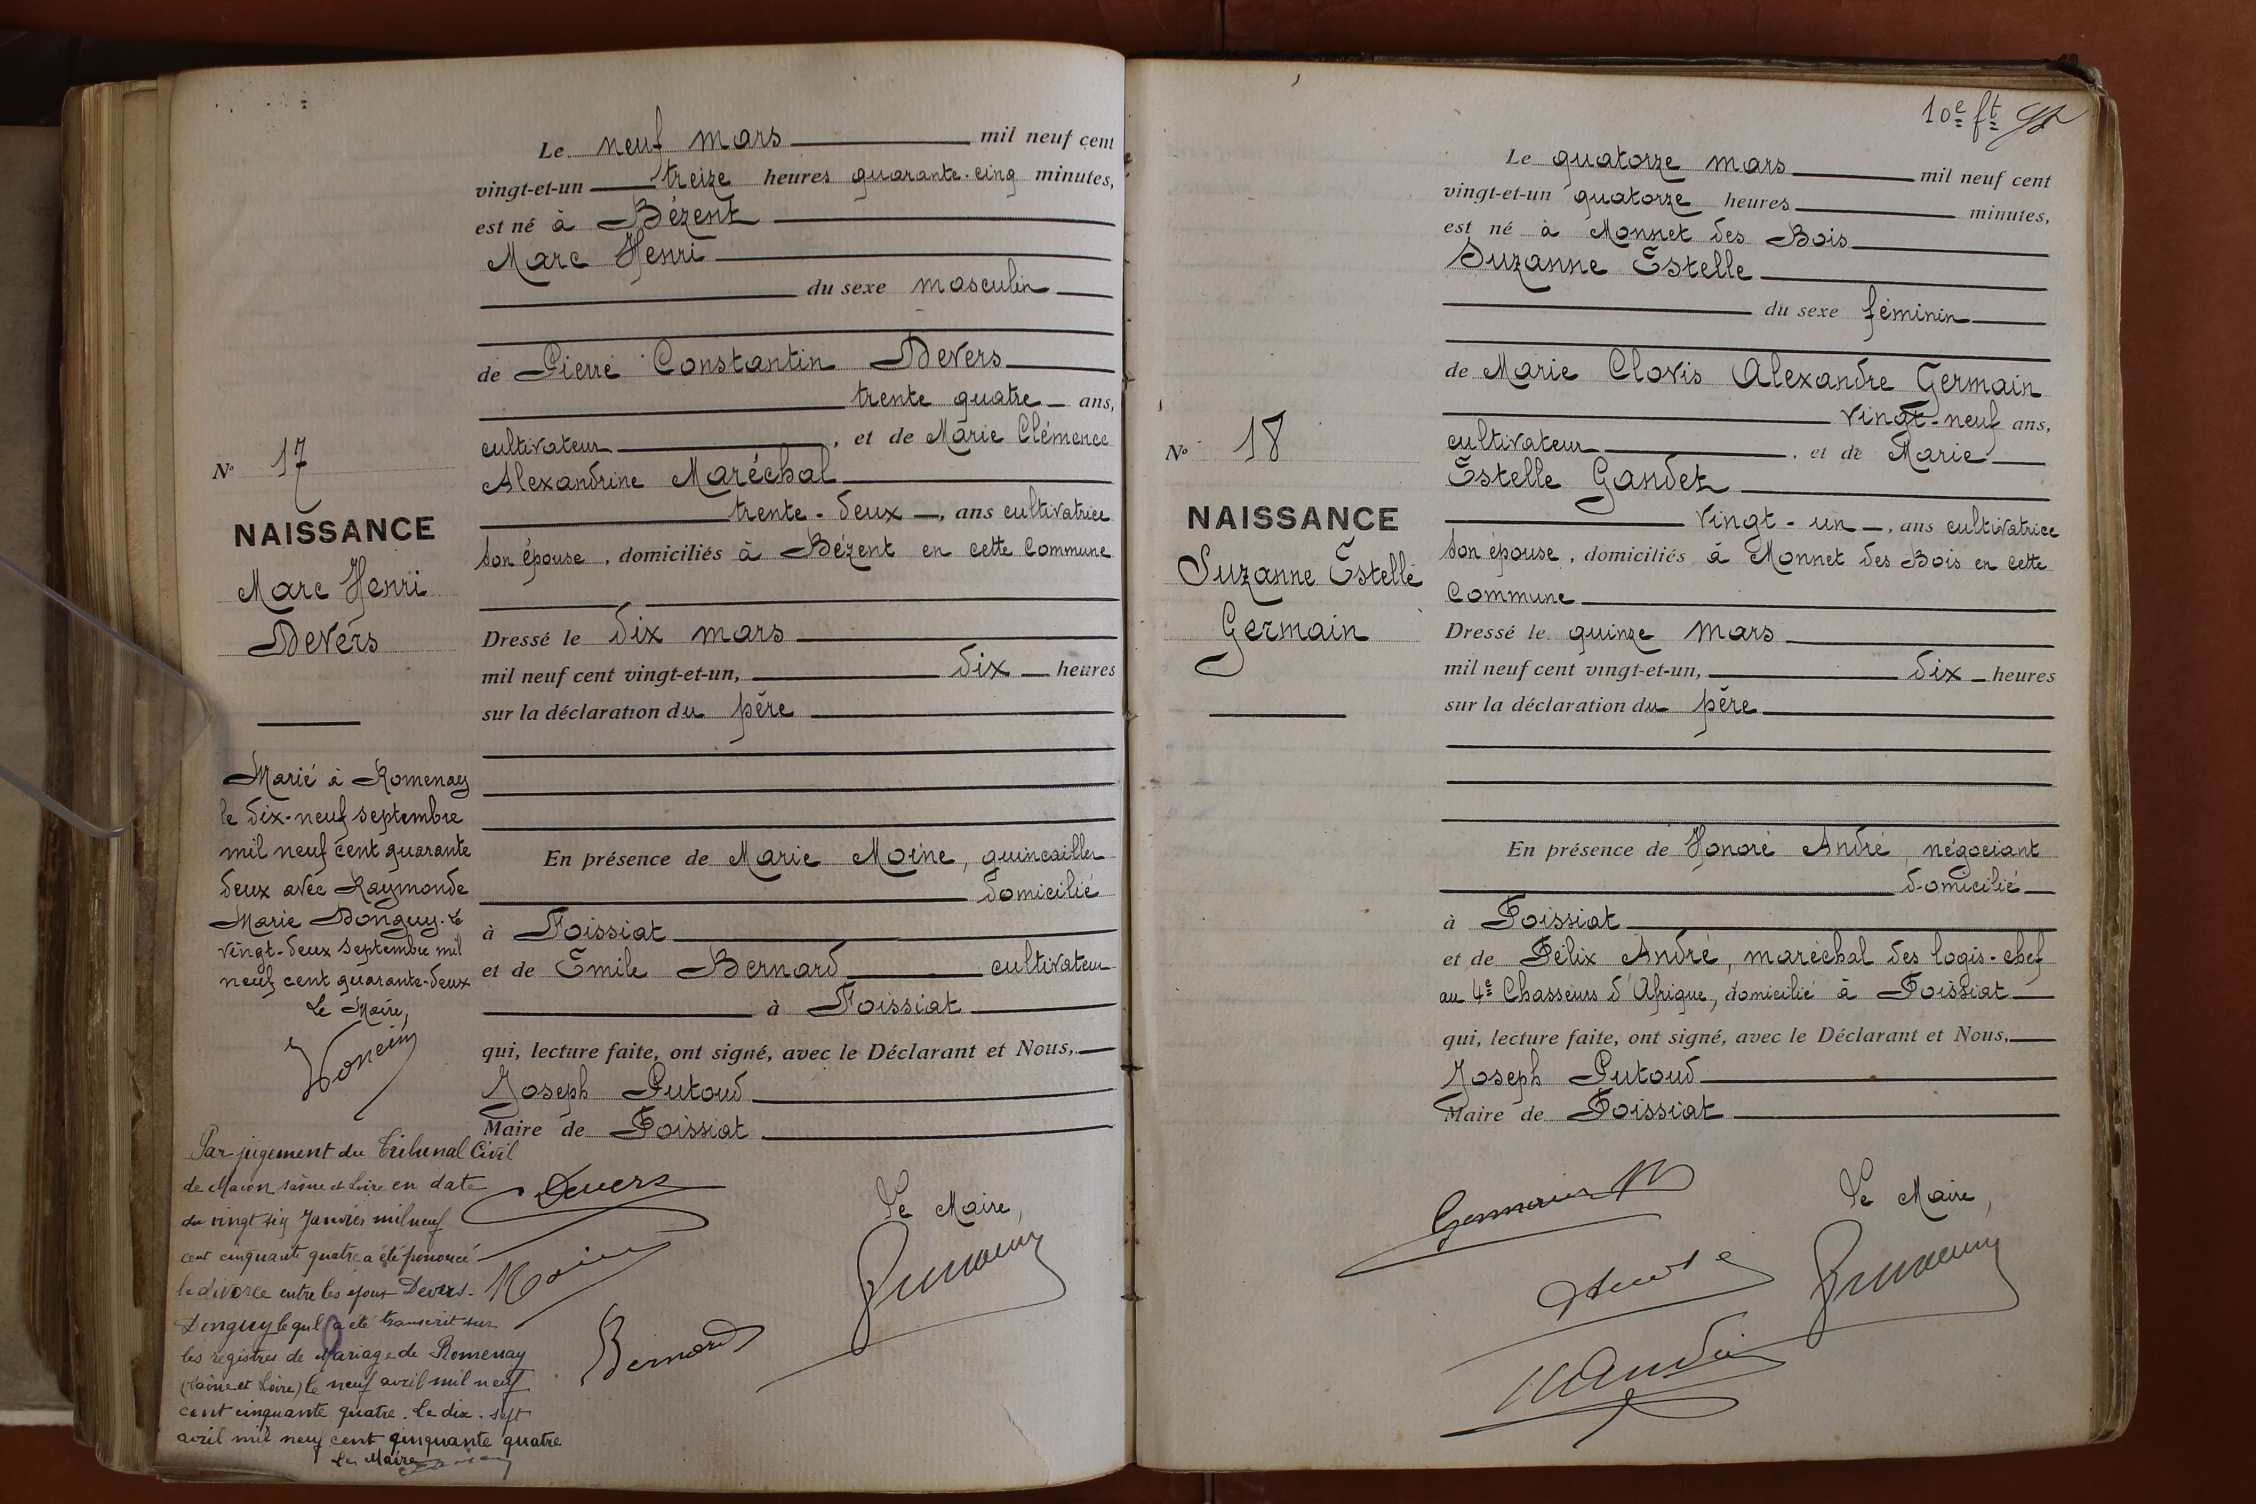 Le neuf mars mil neuf cent
vingt-et-un treize heures quarante-cinq minutes,
est né à Bézent
Marc Henri
du sexe masculin
de Pierre Constantin Devers
trente quatre ans,
cultivateur, et de Marie Clémence
Alexandrine Maréchal
trente-deux, ans cultivatrice
son épouse, domiciliés à Bézent en cette commune
Dressé le dix mars
mil neuf cent vingt-et-un, dix heures
sur la déclaration du père
En présence de Marie Moine, quincailler
domicilié
à Foissiat
et de Emile Bernard cultivateur
à Foissiat
qui, lecture faite, ont signé, avec le Déclarant et Nous,
Joseph Putoud
Maire de Foissiat
Devers
Le Maire,
Moine
Bernard
No 17
NAISSANCE
Marc Henri
Devers
Marié à Romenay
le dix-neuf septembre
mil neuf cent quarante
deux avec Raymonde
Marie Donguy. Le
vingt-deux septembre mil
neuf cent quarante-deux
Le Maire,
Par jugement du Tribunal Civil
de Macon Saône et Loire en date
du vingt six Janvier mil neuf
cent cinquante quatre a été prononcé
le divorce entre les époux Devers-
Donguy lequel a été transcrit sur
les registres de Mariage de Romenay
(Saône et Loire) le neuf avril mil neuf
cent cinquante quatre. Le dix-sept
avril mil neuf cent cinquante quatre
Le Maire
10e ft
Le quatorze mars mil neuf cent
vingt-et-un quatorze heures minutes,
est né à Monnet des Bois
Suzanne Estelle
du sexe féminin
de Marie Clovis Alexandre Germain
vingt-neuf ans,
cultivateur, et de Marie
Estelle Gandet
vingt-un, ans cultivatrice
son épouse, domiciliés à Monnet des Bois en cette
commune
Dressé le quinze mars
mil neuf cent vingt-et-un, dix heures
sur la déclaration du père
En présence de Honoré André, négociant
domicilié
à Foissiat
et de Félix André, maréchal des logis-chef
au 4e Chasseurs d'Afrique, domicilié à Foissiat
qui, lecture faite, ont signé, avec le Déclarant et Nous,
Joseph Putoud
Maire de Foissiat
Germain
Le Maire,
André
No 18
NAISSANCE
Suzanne Estelle
Germain